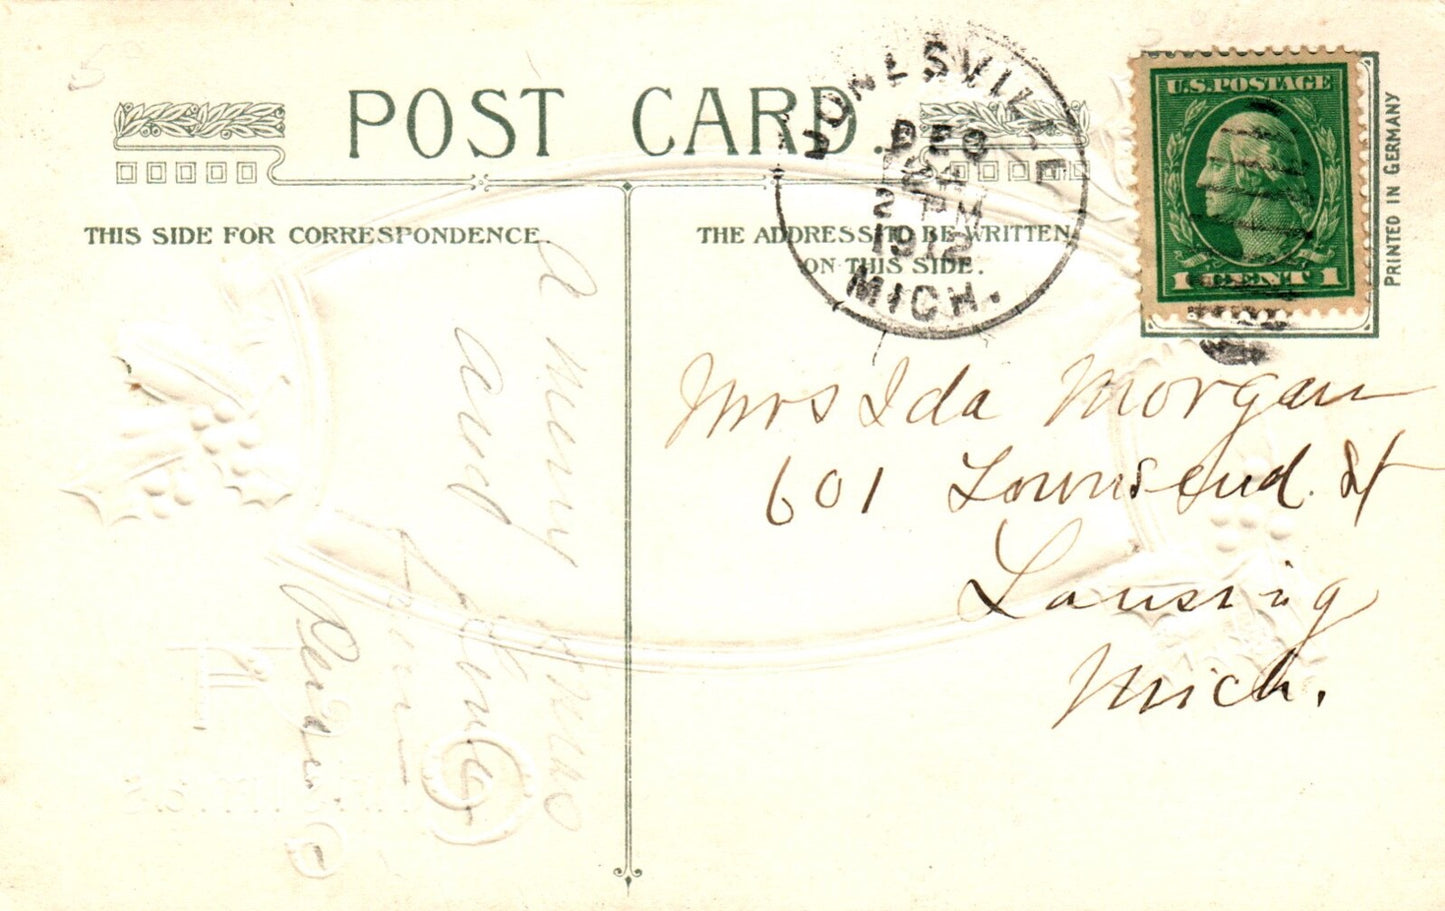 POST CARD.
THIS SIDE FOR CORRESPONDENCE.
THE ADDRESS TO BE WRITTEN
ON THIS SIDE.
JONESVILLE
DEC
24
2 PM
1912
MICH.
U.S. POSTAGE
1 CENT 1
PRINTED IN GERMANY
A merry Xmas
and
Mrs Ida Morgan
601 Townsend St
Lansing
Mich.